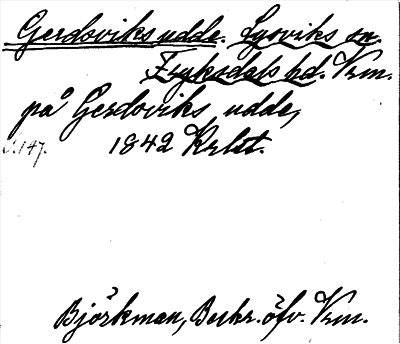 Gerdoviks udde. Lysviks sn.
Fryksdals hd. Vrm.
på Gerdoviks udde,
s. 147. 1842 Krlst.
Björkman, Beskr. öfv. Vrm.